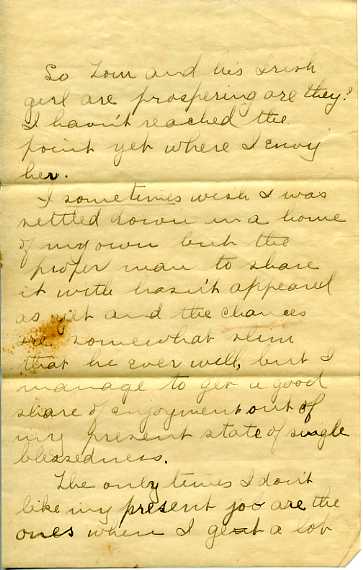 So Tom and his Irish
girl are prospering are they?
I havn't reached the
point yet where I envy
her.
I sometimes wish I was
settled down in a home
of my own but the
proper man to share
it with hasn't appeared
as yet and the chances
are somewhat slim
that he ever will, but I
manage to get a good
share of enjoyment out of
my present state of single
blessedness.
The only times I don't
like my present job are the
ones when I get a lot